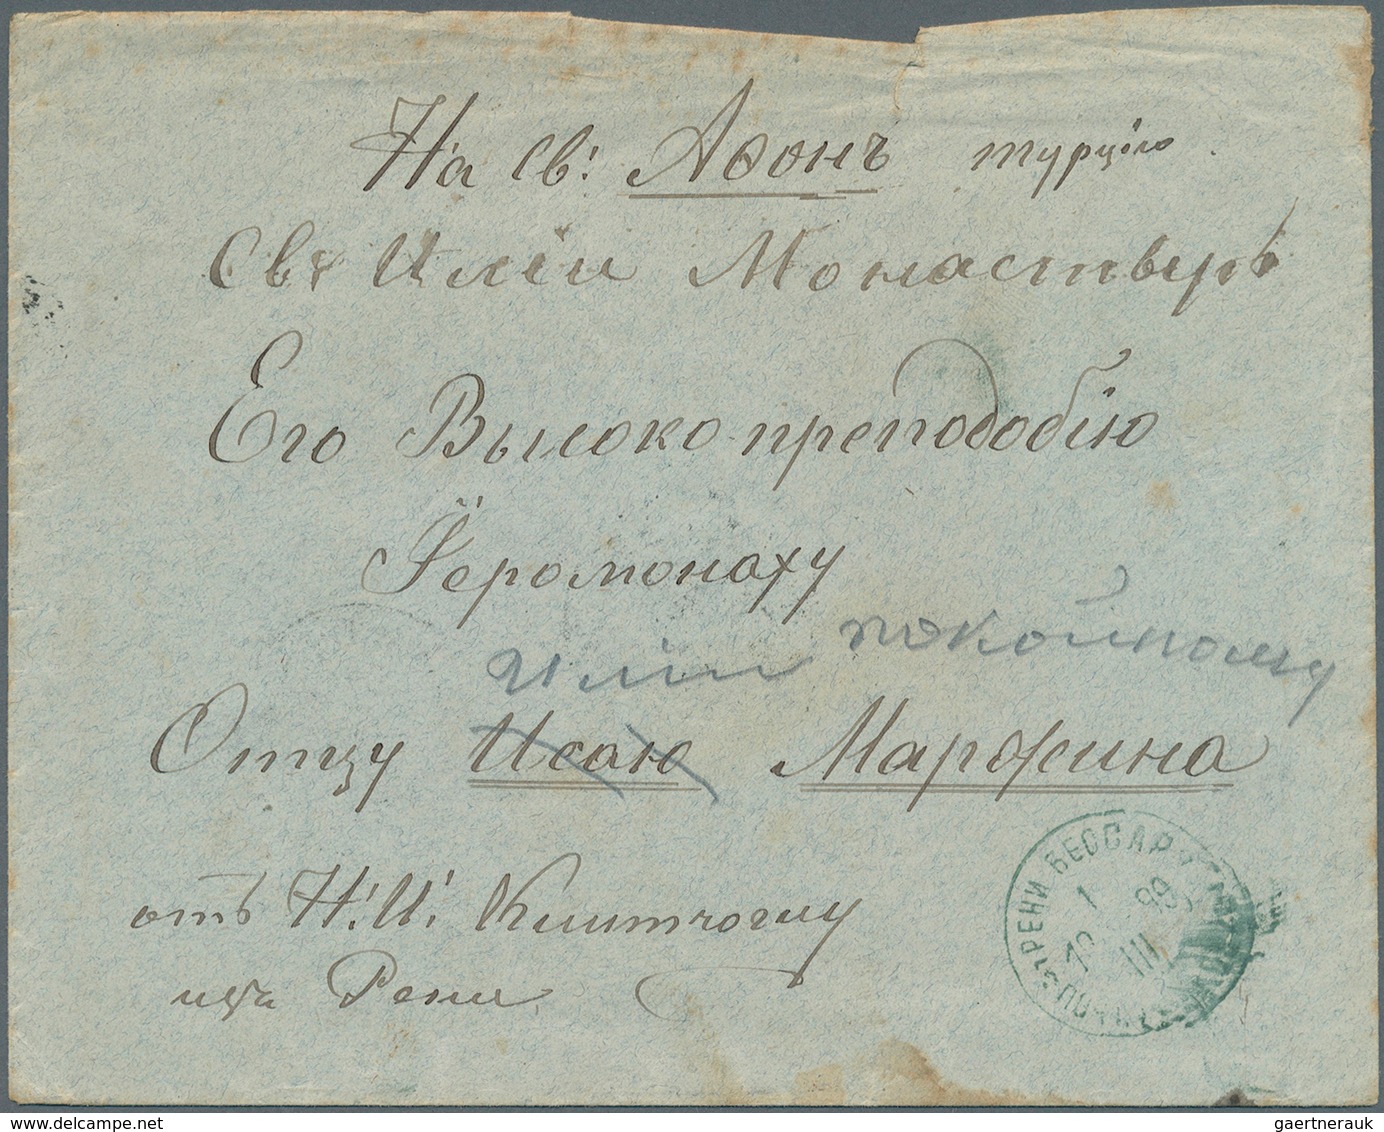 На Св: Аѳонъ Турцію
Св: Иліи Монастырь
Его Высоко преподобію
Іеромонаху
Иліи покойному
Отцу Исаю Марфина
отъ Н: И:
изъ Рени
РЕНИ БЕССАР
1 99
III
gaertnerauk